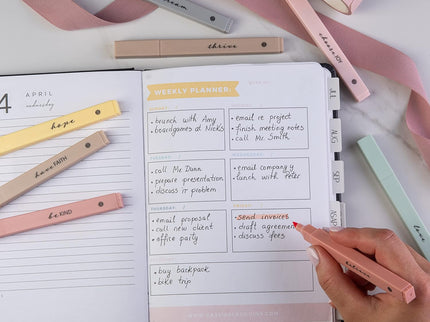 dream
thrive
choose joy
4
APRIL
wednesday
hope
have FAITH
be KIND
love
WEEKLY PLANNER
• brunch with Amy
• boardgames at Nick's
• email re project
• finish meeting notes
• call Mr. Smith
• call Mr. Dunn
• prepare presentation
• discuss it problem
• email company y
• lunch with Peter
THURSDAY
• email proposal
• call new client
• office party
• send invoices
• draft agreement
• discuss fees
• buy backpack
• bike trip
JUL
AUG
SEP